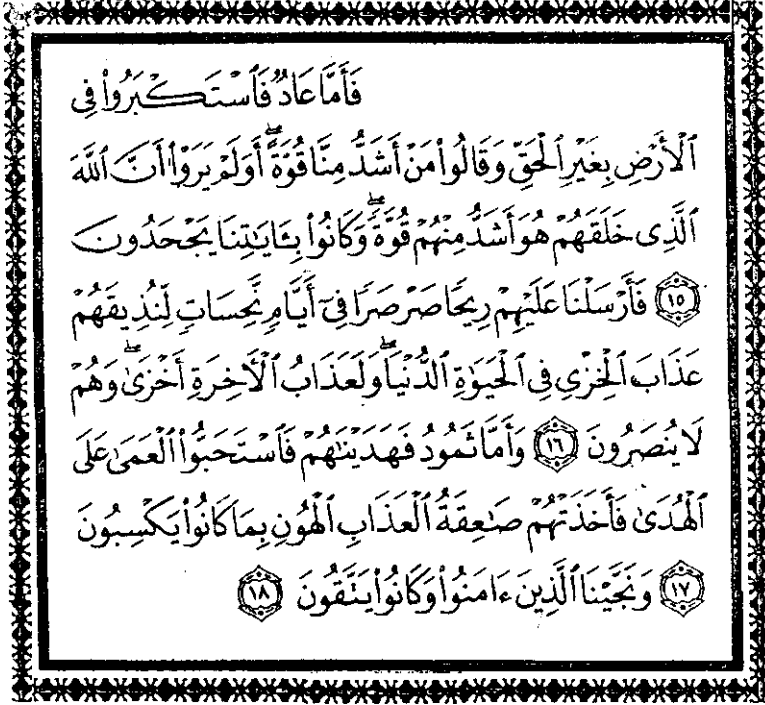 فَأَمَّا عَادٌ فَٱسْتَكْبَرُوا۟ فِى
ٱلْأَرْضِ بِغَيْرِ ٱلْحَقِّ وَقَالُوا۟ مَنْ أَشَدُّ مِنَّا قُوَّةً ۖ أَوَلَمْ يَرَوْا۟ أَنَّ ٱللَّهَ
ٱلَّذِى خَلَقَهُمْ هُوَ أَشَدُّ مِنْهُمْ قُوَّةً ۖ وَكَانُوا۟ بِـَٔايَٰتِنَا يَجْحَدُونَ
﴿١٥﴾ فَأَرْسَلْنَا عَلَيْهِمْ رِيحًا صَرْصَرًا فِىٓ أَيَّامٍ نَّحِسَاتٍ لِّنُذِيقَهُمْ
عَذَابَ ٱلْخِزْىِ فِى ٱلْحَيَوٰةِ ٱلدُّنْيَا ۖ وَلَعَذَابُ ٱلْأَخِرَةِ أَخْزَىٰ ۖ وَهُمْ
لَا يُنصَرُونَ ﴿١٦﴾ وَأَمَّا ثَمُودُ فَهَدَيْنَٰهُمْ فَٱسْتَحَبُّوا۟ ٱلْعَمَىٰ عَلَى
ٱلْهُدَىٰ فَأَخَذَتْهُمْ صَٰعِقَةُ ٱلْعَذَابِ ٱلْهُونِ بِمَا كَانُوا۟ يَكْسِبُونَ
﴿١٧﴾ وَنَجَّيْنَا ٱلَّذِينَ ءَامَنُوا۟ وَكَانُوا۟ يَتَّقُونَ ﴿١٨﴾